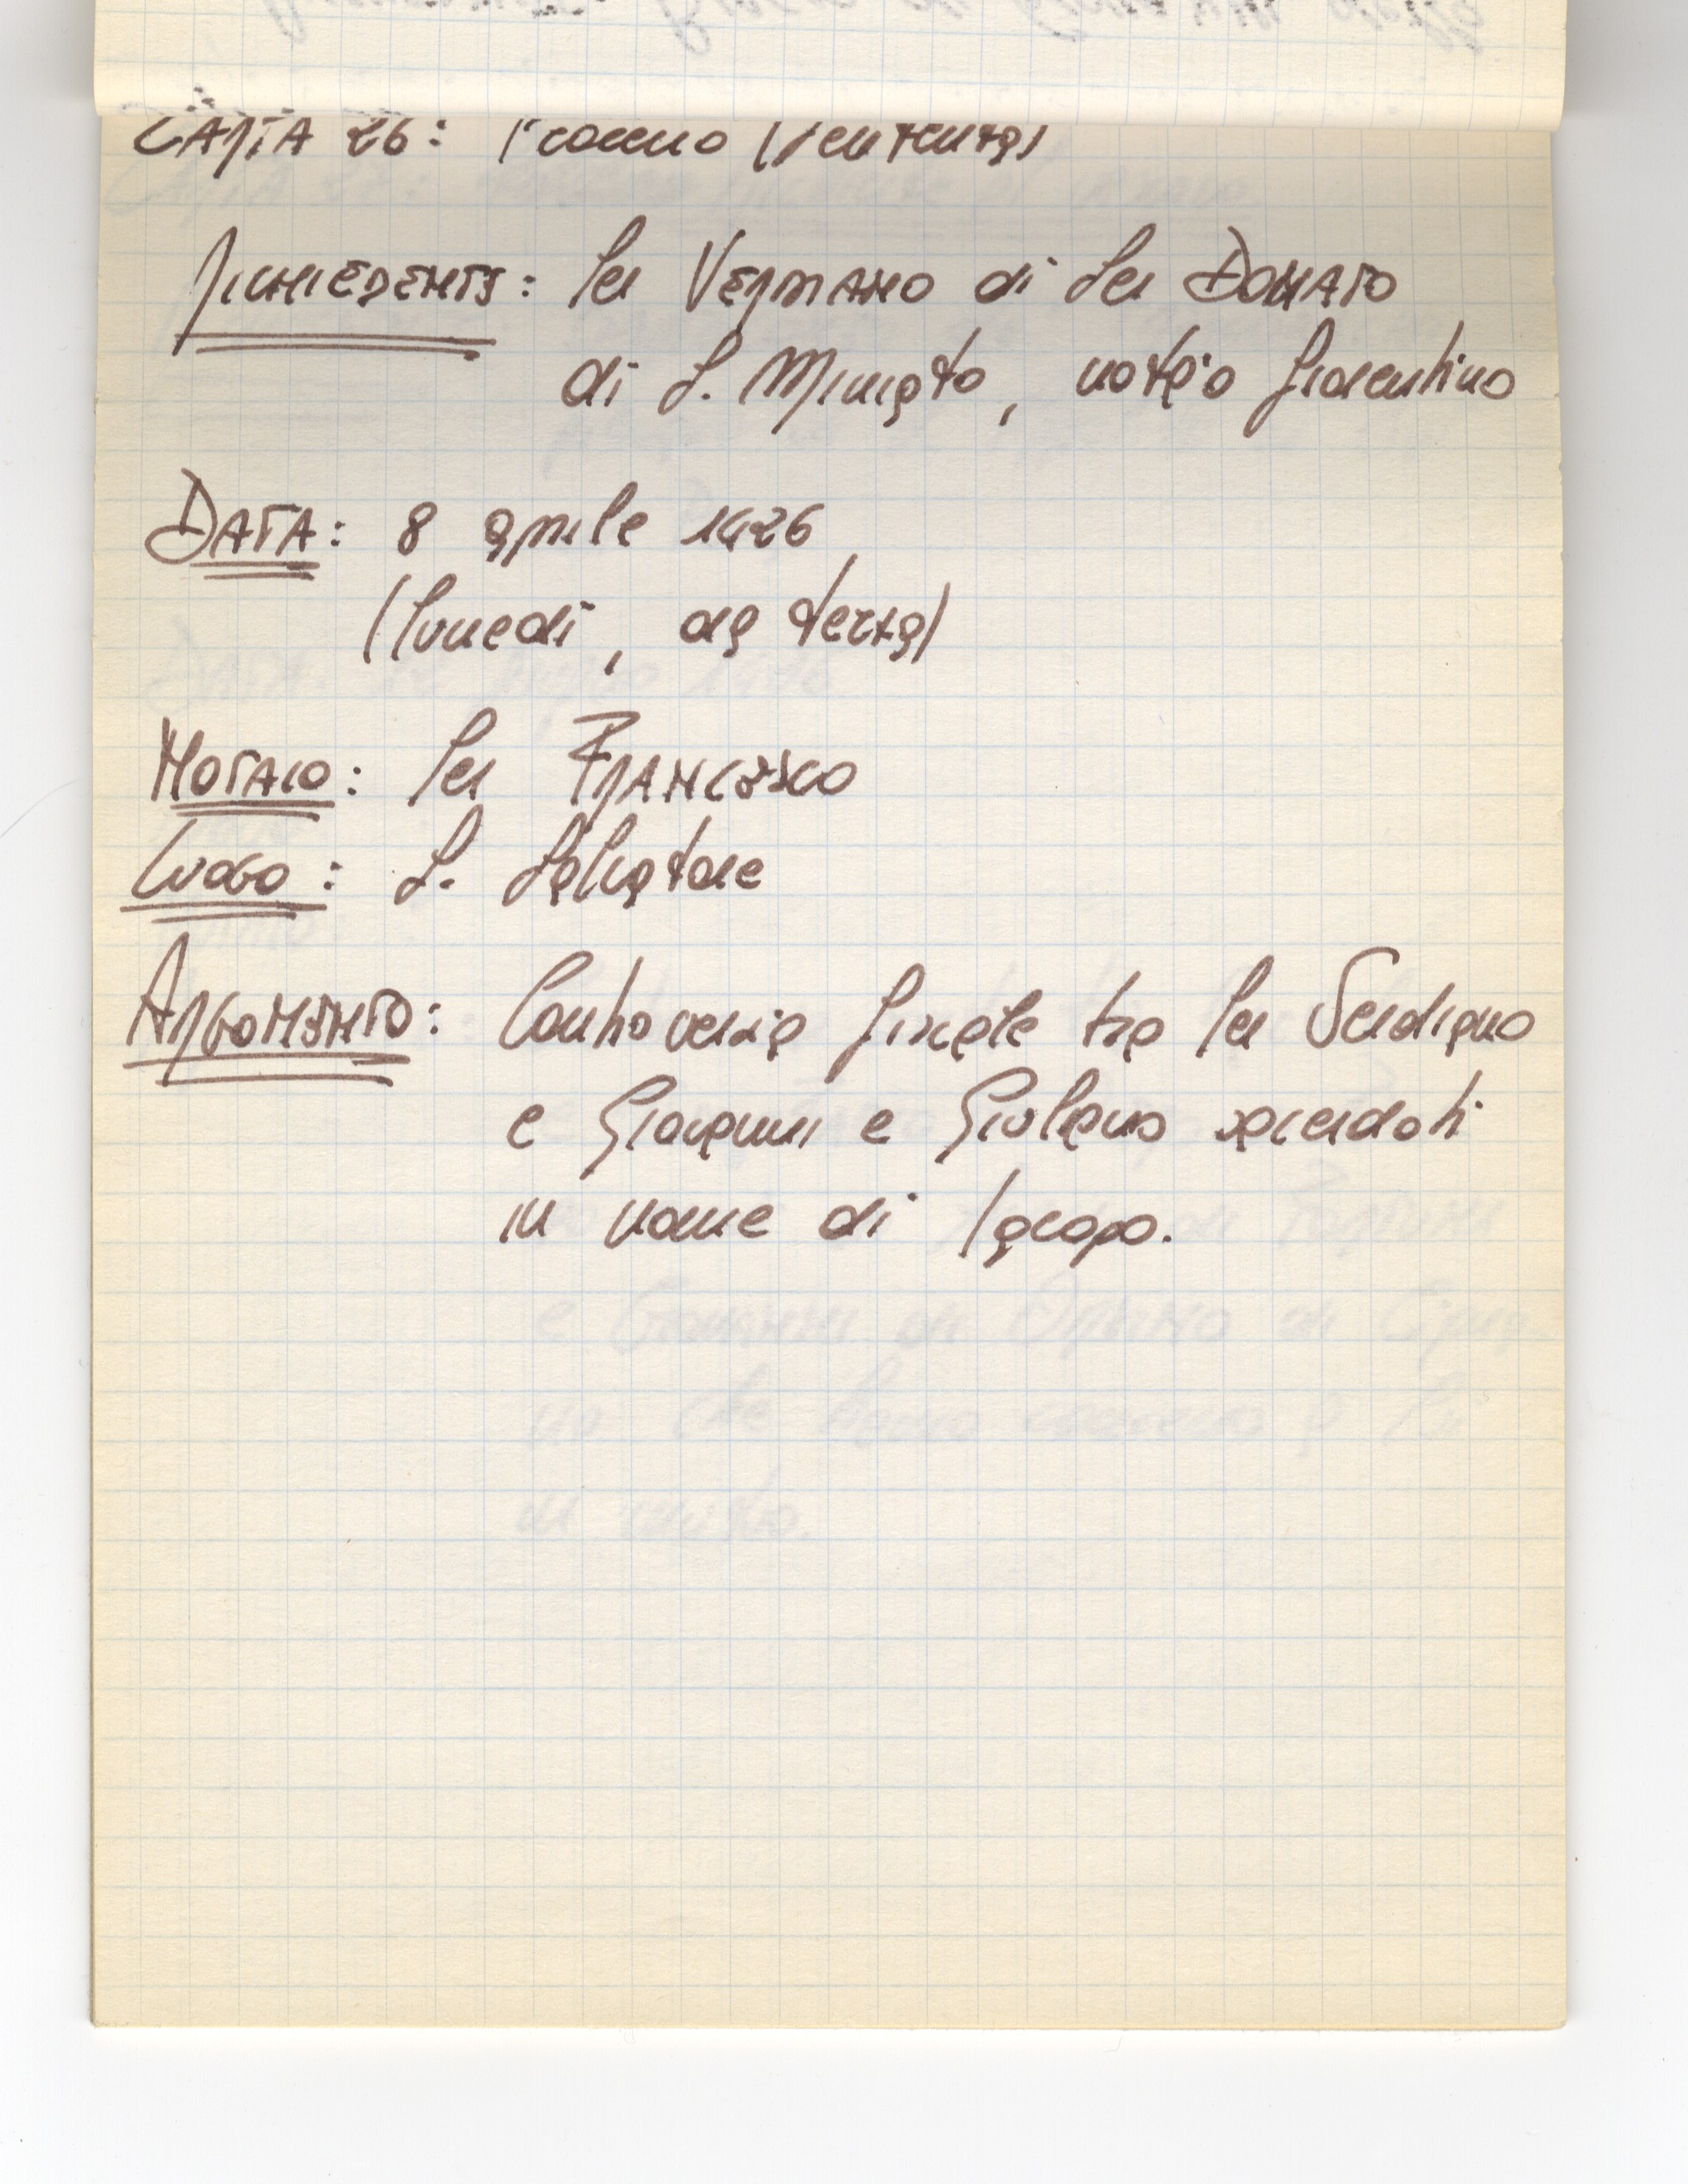 CARTA 26: Processo (sentenza)
RICHIEDENTE: Ser VERDIANO di Ser DONATO
di S. Miniato, notaio fiorentino
DATA: 8 aprile 1426
(lunedì, ora terza)
NOTAIO: Ser FRANCESCO
LUOGO: S. Salvatore
ARGOMENTO: Controversia fiscale tra Ser Verdiano
e Giovanni e Giuliano sacerdoti
in nome di Iacopo.